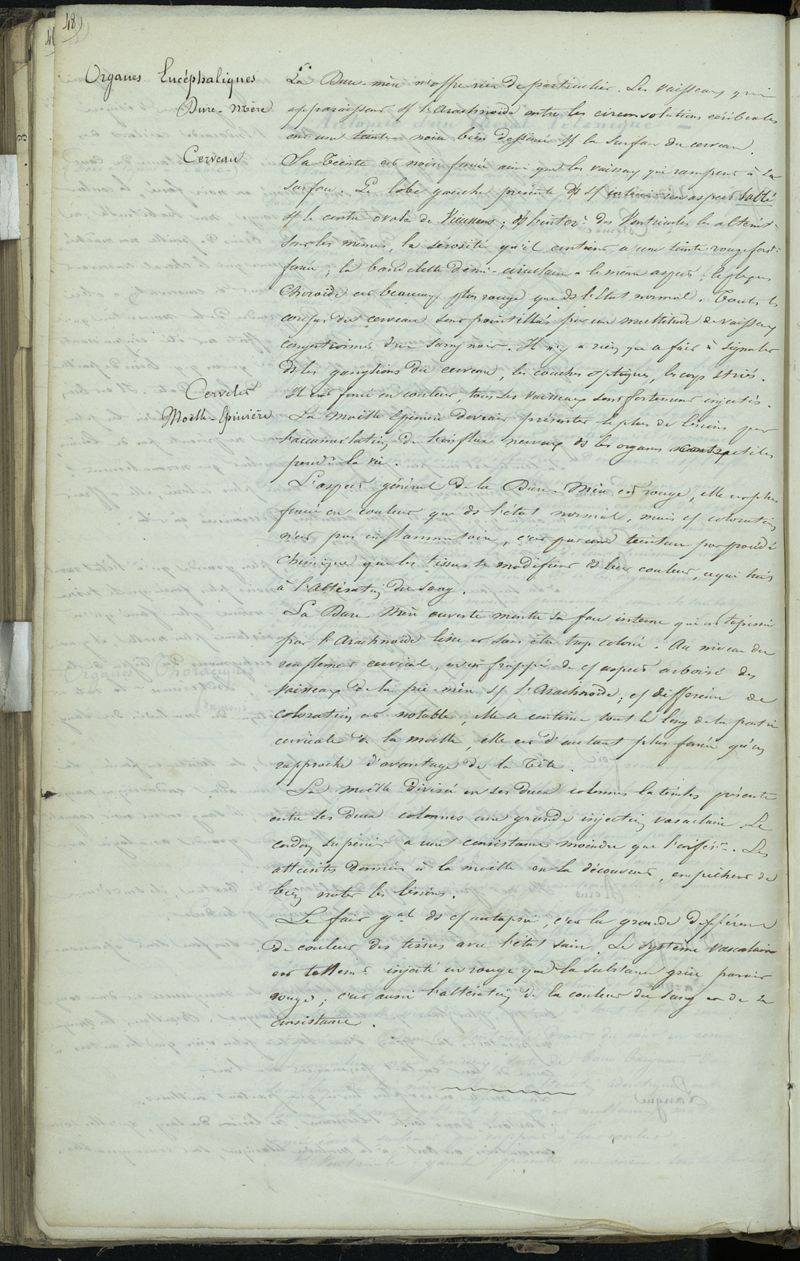 48
Organes Encéphaliques
Dure-Mère
La Dure-mère n'offre rien de particulier. Les vaisseaux qui
apparaissent s/ l'Arachnoïde entre les circonvolutions cérébrales
ont une teinte noire bien dessinée s/ la surface du cerveau.
Cerveau
Sa teinte est noire foncée ainsi que les vaisseaux qui rampent à sa
surface. Le lobe gauche présente un aspect sablé
s/ le centre ovale de Vieussens; l'inter. des Ventricules les altérat.
sont les mêmes, la sérosité qu'il contient a une teinte rouge fort
foncée; la bandelette demi-circulaire a le même aspect; le plexus
Choroïde est beaucoup plus rouge que ds l'état normal. Toutes les
coupes du cerveau sont pointillées par une multitude de vaisseaux
d'un sang noir. Il n'y a rien qui a fait à signaler
ds les ganglions du cerveau, les couches optiques, les corps striés.
Cervelet
Il est foncé en couleur, tous les vaisseaux sont fortement injectés.
Moëlle-Epinière
La Moëlle Epinière devait présenter le plus de lésions par
l'accumulation de l'influx nerveux ds les organes
pendt la vie.
L'aspect général de la Dure-Mère est rouge, elle est plus
foncée en couleur que ds l'état normal, mais c/ coloration
n'est pas inflammatoire, c'est par une teinture par procédé
Chimique que les tissus se modifient ds leur couleur, ce qui tient
à l'altération du sang.
La Dure-Mère ouverte montre sa face interne qui est tapissée
par l'Arachnoïde lisse et sans être trop colorée. Au niveau du
renflement cervical, on est frappé de c/ aspect arborisé des
vaisseaux de la pie-mère s/ l'Arachnoïde; c/ différence de
coloration est notable, elle se continue tout le long de la partie
cervicale de la moëlle, elle est d'autant plus foncée qu'on
rapproche d'avantage de la Tête.
La moëlle divisée en ses deux colonnes latérales présente
entre ses deux colonnes une grande injection vasculaire. Le
cordon supérieur a une consistance moindre que l'inférr. Les
atteintes données à la moëlle en la découvrant, empêchent de
bien noter les lésions.
Le fait gal ds c/ autopsie, c'est la grande différence
de couleur des tissus avec l'état sain. Le système vasculaire
est tellemt injecté en rouge que la substance grise paraît
rouge; c'est aussi l'altération de la couleur du sang et de sa
consistance.